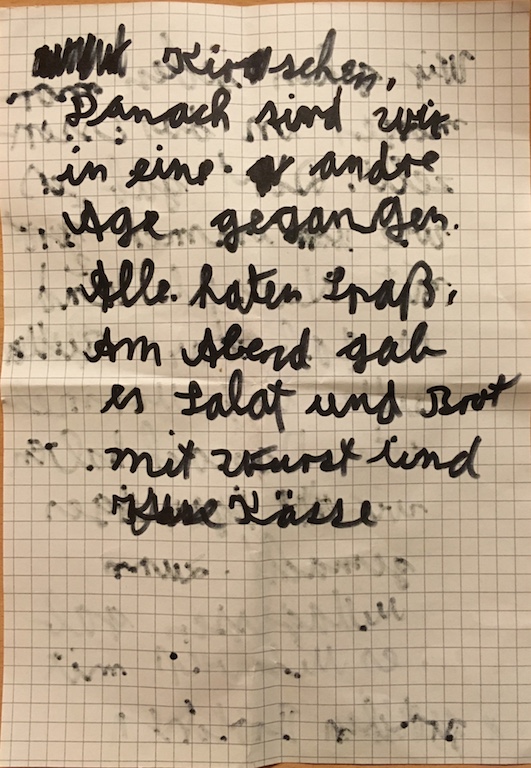 Kirschen,
Danach sind wir
in eine andre
Age gegangen.
Alle haten Spaß,
Am Abend gab
es Salat und Brot
mit Wurst und
Kässe